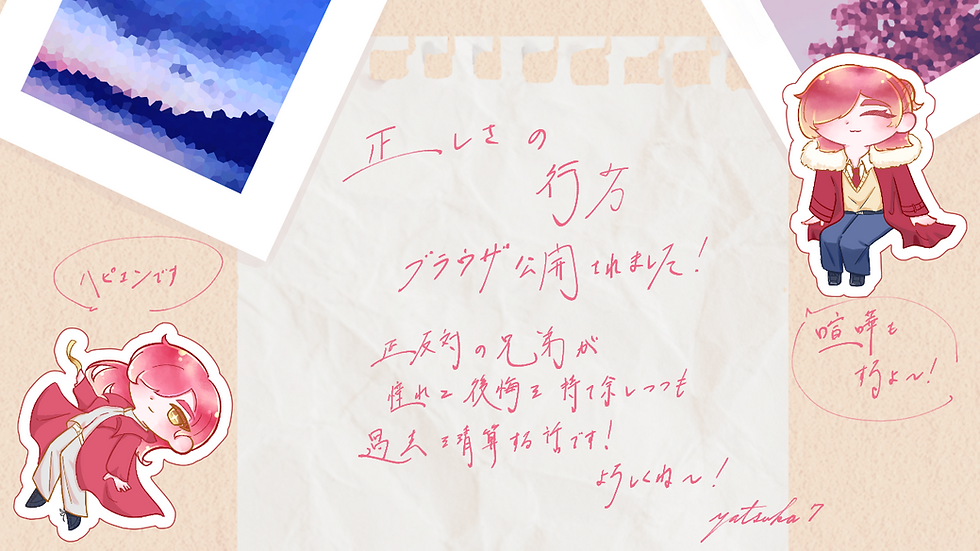 正しさの
行方
ブラウザ公開されました!
正反対の兄弟が
憧れと後悔を持て余しつつも
過去を清算する話です!
よろしくね〜!
yatsuka 7
ハピエンです
喧嘩も
するよ〜!